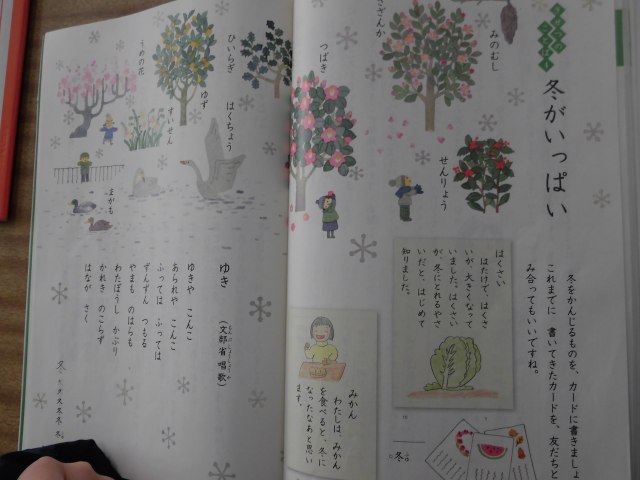 きせつの
ことば4
冬がいっぱい
冬をかんじるものを、カードに書きましょ
これまでに 書いてきたカードを、友だちと
み合ってもいいですね。
みのむし
さざんか
せんりょう
つばき
はくさい
はたけで はくさ
いが 大きくなって
いました。はくさい
が、冬にとれるやさ
いだと、はじめて
知りました。
冬
みかん
わたしは、みかん
を食べると、冬に
なったなあと思い
ます。
ひいらぎ
ゆず
うめの花
はくちょう
すいせん
まがも
ゆき
（文部省唱歌）
ゆきや こんこ
あられや こんこ
ふっては ふっては
ずんずん つもる
やまも のはらも
わたぼうし かぶり
かれき のこらず
はなが さく
冬